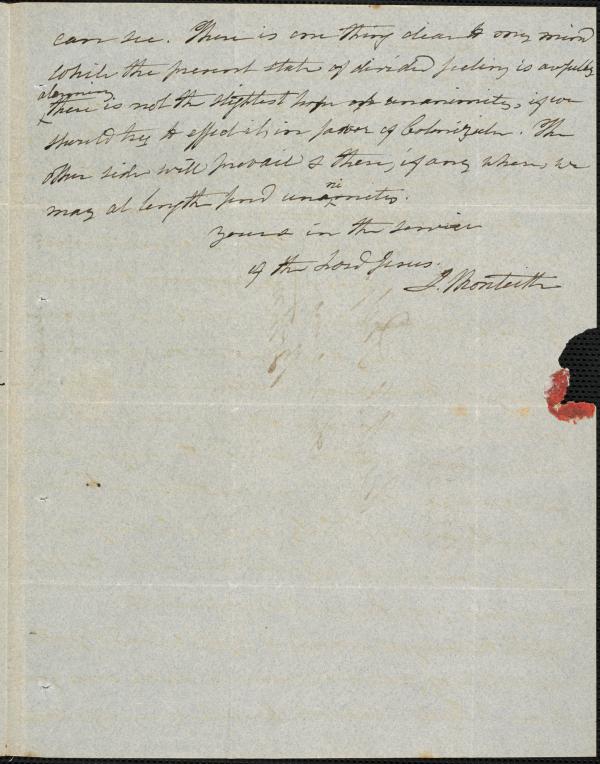 can see. There is one thing clear to my mind
While the present state of divided feeling is awfully
alarming
there is not the slightest hope of unanimity, if we
should try to effect it, in favor of Colonizatn. The
other side will prevail & there, if any where, we
may at length find unanimity.
yours in the service
of the Lord Jesus.
J. Monteith